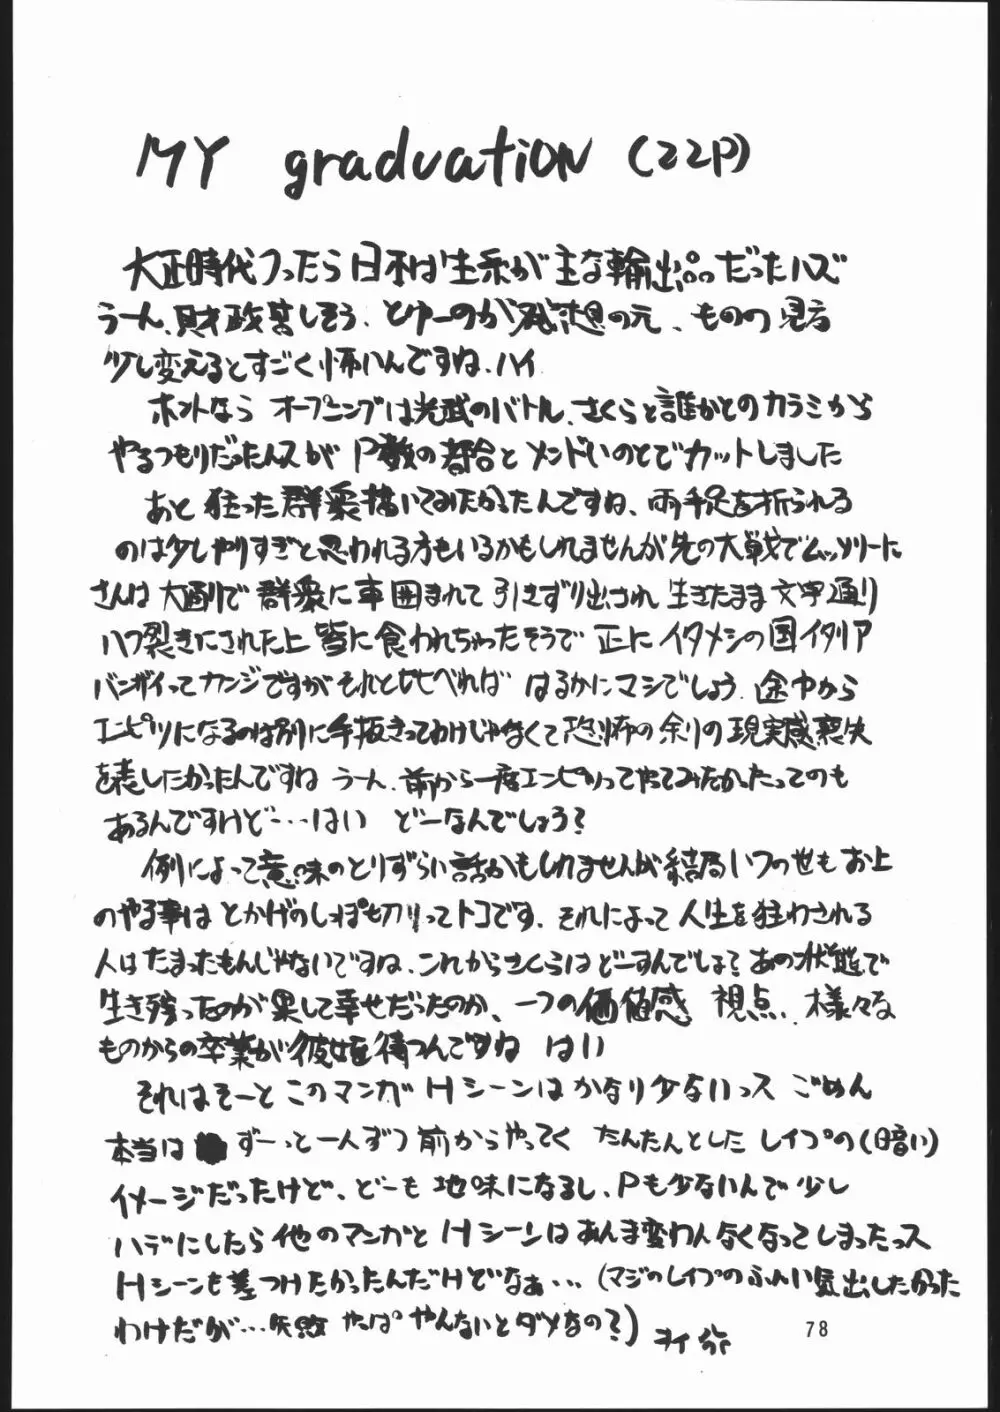 MY graduation (22P)
大正時代つったら日本は生糸が主な輸出品だったハズ
うーん、財政苦しそう、とゆーのが発想の元、ものの見方
少し変えるとすごく怖いんですね、ハイ
ホントなら オープニングは光武のバトル、さくらと誰かとのカラミから
やるつもりだったんスが P数の都合と メンドいのとでカットしました
あと 狂った群衆描いてみたかったんですね、両手足を折られる
のは少しやりすぎと思われる方もいるかもしれませんが先の大戦でムッソリーに
さんは 大通りで 群衆に車囲まれて 引きずり出され 生きたまま 文字通り
八つ裂きにされた上 皆に食われちゃったそうで 正に イタメシの国イタリア
バンザイってカンジですが それと比べれば はるかにマシでしょう、途中から
エンピツになるのは別に手抜きってわけじゃなくて恐怖の余りの現実感喪失
を表したかったんですね うーん、前から一度エンピツってやってみたかったってのも
あるんですけどー…はい どーなんでしょう?
例によって意味のとりずらい話かもしれませんが結局いつの世もお上
のやる事は とかげのしっぽ切りってトコです、それによって人生を狂わされる
人はたまったもんじゃないですね、これからさくらはどーすんでしょ?あの状態で
生き残ったのが果して幸せだったのか、一つの価値感 視点、様々な
ものからの卒業が彼女を待つんですね はい
それはそーと このマンガ Hシーンは かなり少ないっス ごめん
本当は ずーっと一人ずつ前からやってく たんたんとした レイプの(暗い)
イメージだったけど、どーも 地味になるし、Pも少ないんで少し
ハデにしたら他のマンガと Hシーンはあんま変わんなくなってしまったっス
Hシーンも差つけたかったんだけどなぁ…(マジのレイプのふんい気出したかった
わけだが…失敗 やっぱ やんないとダメなの?)
78